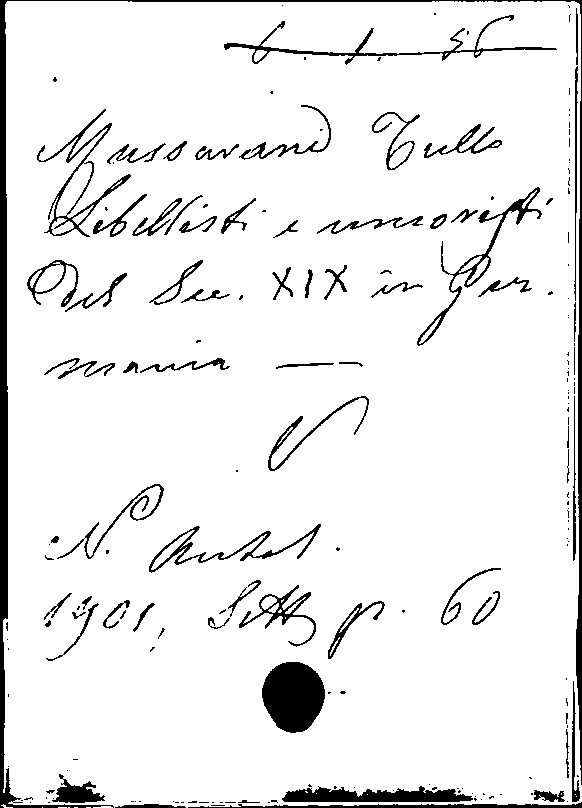 6. 1. 56
Massarani Tullo
Libellisti e umoristi
del Sec. XIX in Ger.
mania —
V
N. Antol.
1901, Sett p. 60